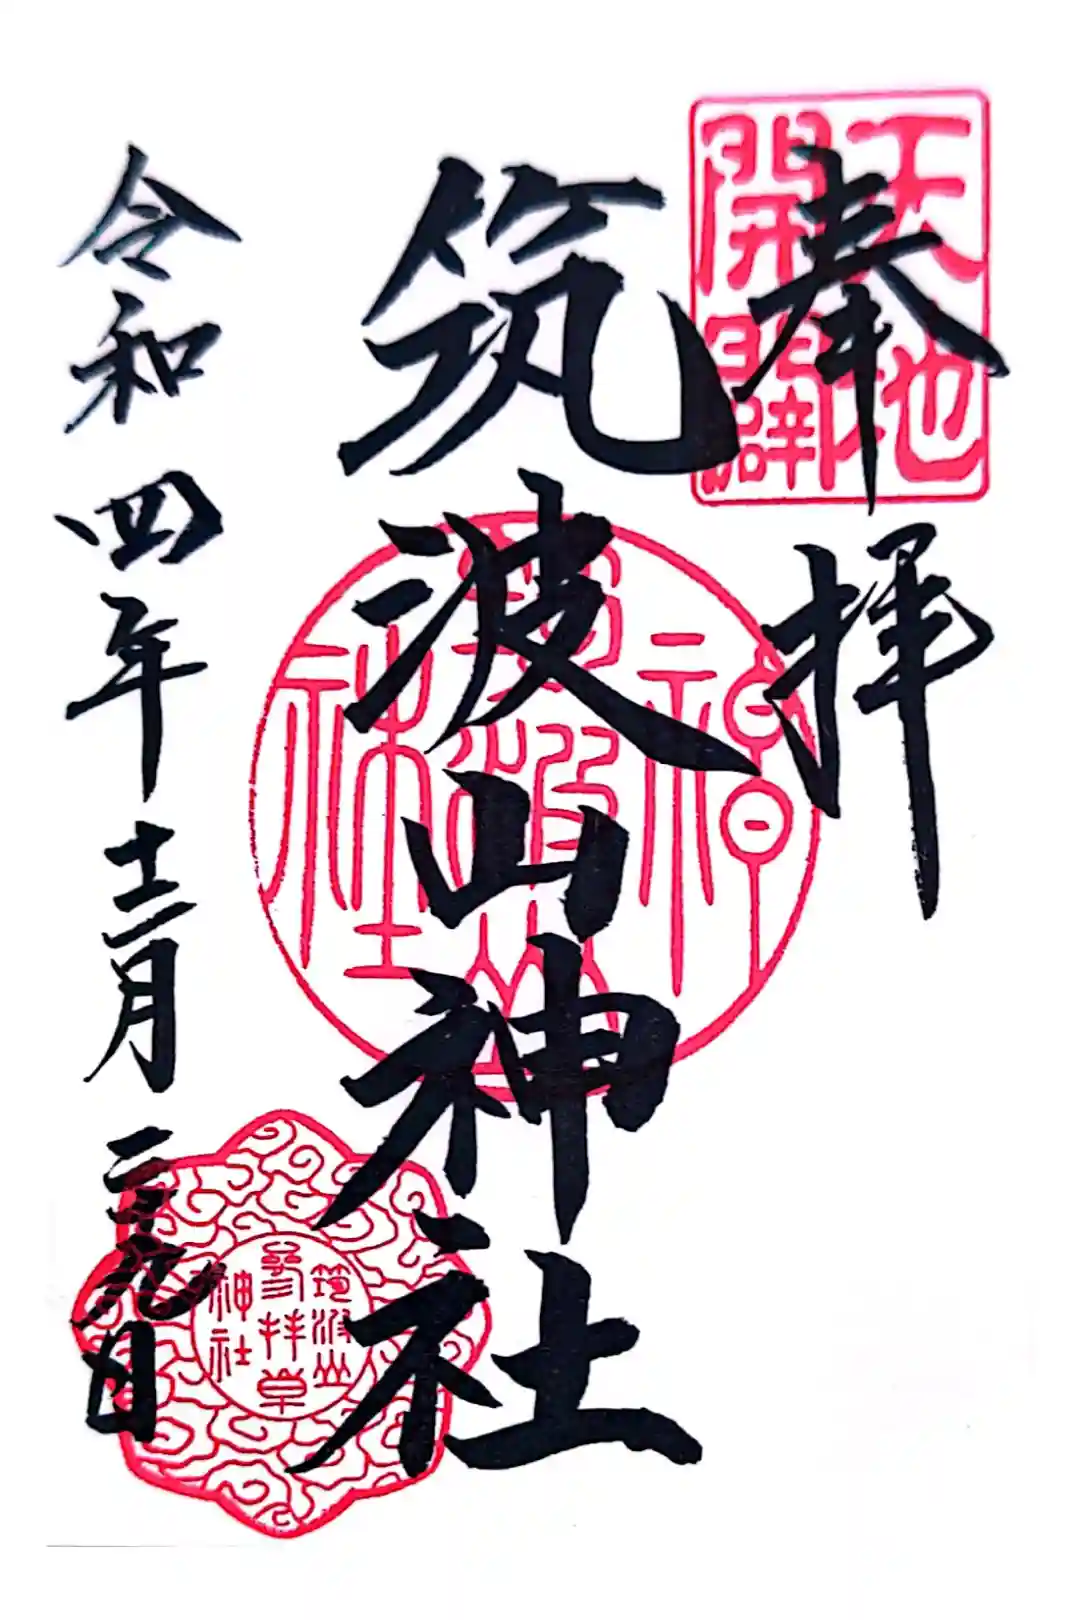 奉拝
天地
開闢
筑波山神社
筑波山神社
令和四年十二月二十九日
筑波山
參拝章
神社